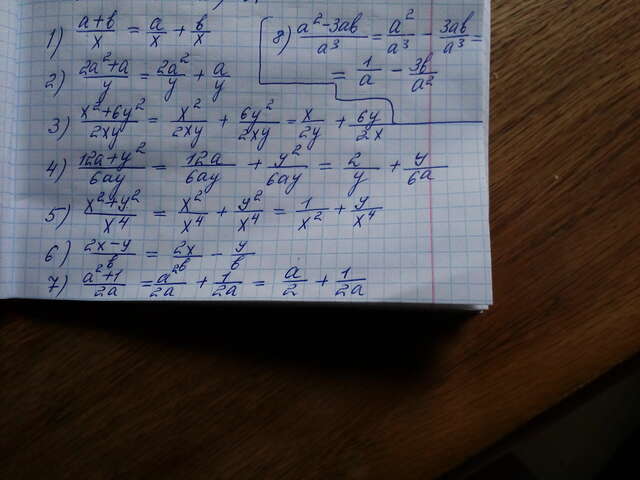 1) (a+b)/x = a/x + b/x
2) (2a²+a)/y = 2a²/y + a/y
3) (x²+6y²)/2xy = x²/2xy + 6y²/2xy = x/2y + 6y/2x
4) (12a+y²)/6ay = 12a/6ay + y²/6ay = 2/y + y/6a
5) (x²+y²)/x⁴ = x²/x⁴ + y²/x⁴ = 1/x² + y/x⁴
6) (2x-y)/b = 2x/b - y/b
7) (a²+1)/2a = a²/2a + 1/2a = a/2 + 1/2a
8) (a²-3ab)/a³ = a²/a³ - 3ab/a³ =
= 1/a - 3b/a²